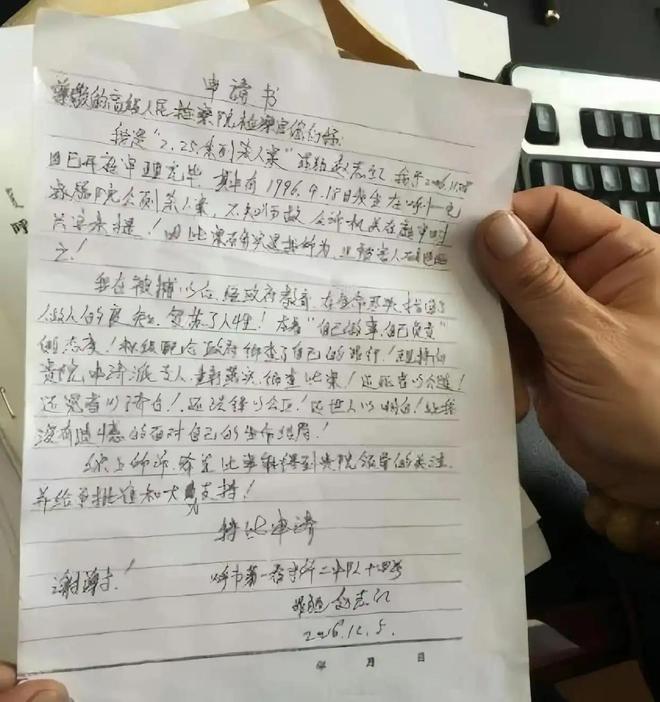 申请书
尊敬的高级人民检察院检察官你们好
我是"2.25系列杀人案"罪犯赵志红，我于2006.11.28
日已开庭审理完毕，其中有1996.4.18日发生在呼市一毛
家属院公厕杀人案，不知何故公诉机关在庭审时
只字未提！因此案确实是我所为，且被害人确已死
亡！
我在被捕以后，经政府教育，在生命尽头找回了
做人的良知，复苏了人性！本着"自己做事，自己负责"
的态度！积极配合政府彻查了自己的罪行！现特向
贵院申请派专人重新落实彻查此案！还死者以公道！
还冤者以清白！还法律以公正！还世人以明白！让我
没有遗憾的面对自己的生命结局！
综上所诉，希望此事能得到贵院领导的关注，
并给予批准和大力支持！
特此申请
谢谢！ 呼市第一看守所二中队十四号
罪犯 赵志红
2006.12.5.
年 月 日